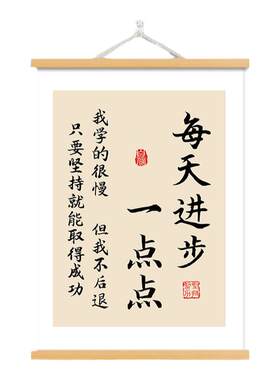 每天进步
一点点
我学的很慢 但我不后退
只要坚持就能取得成功